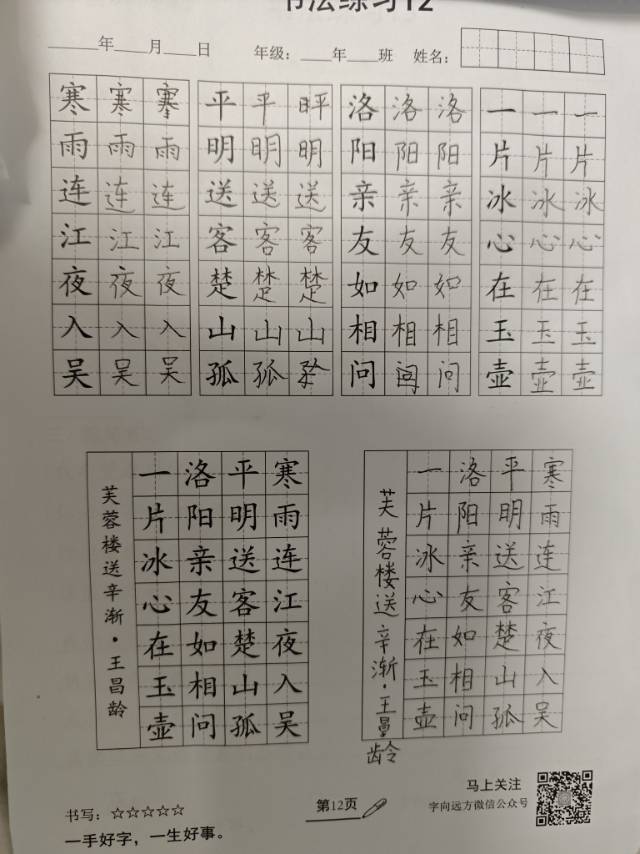 书法练习12
______年____月____日 年级：____年____班 姓名：
寒 寒 寒 平 平 平 洛 洛 洛 一 一 一
雨 雨 雨 明 明 明 阳 阳 阳 片 片 片
连 连 连 送 送 送 亲 亲 亲 冰 冰 冰
江 江 江 客 客 客 友 友 友 心 心 心
夜 夜 夜 楚 楚 楚 如 如 如 在 在 在
入 入 入 山 山 山 相 相 相 玉 玉 玉
吴 吴 吴 孤 孤 问 问 壶 壶 壶
寒雨连江夜入吴
平明送客楚山孤
洛阳亲友如相问
一片冰心在玉壶
芙蓉楼送辛渐·王昌龄
寒雨连江夜入吴
平明送客楚山孤
洛阳亲友如相问
一片冰心在玉壶
芙蓉楼送辛渐·王昌龄
书写：☆☆☆☆☆
一手好字，一生好事。
第12页
马上关注
字向远方微信公众号